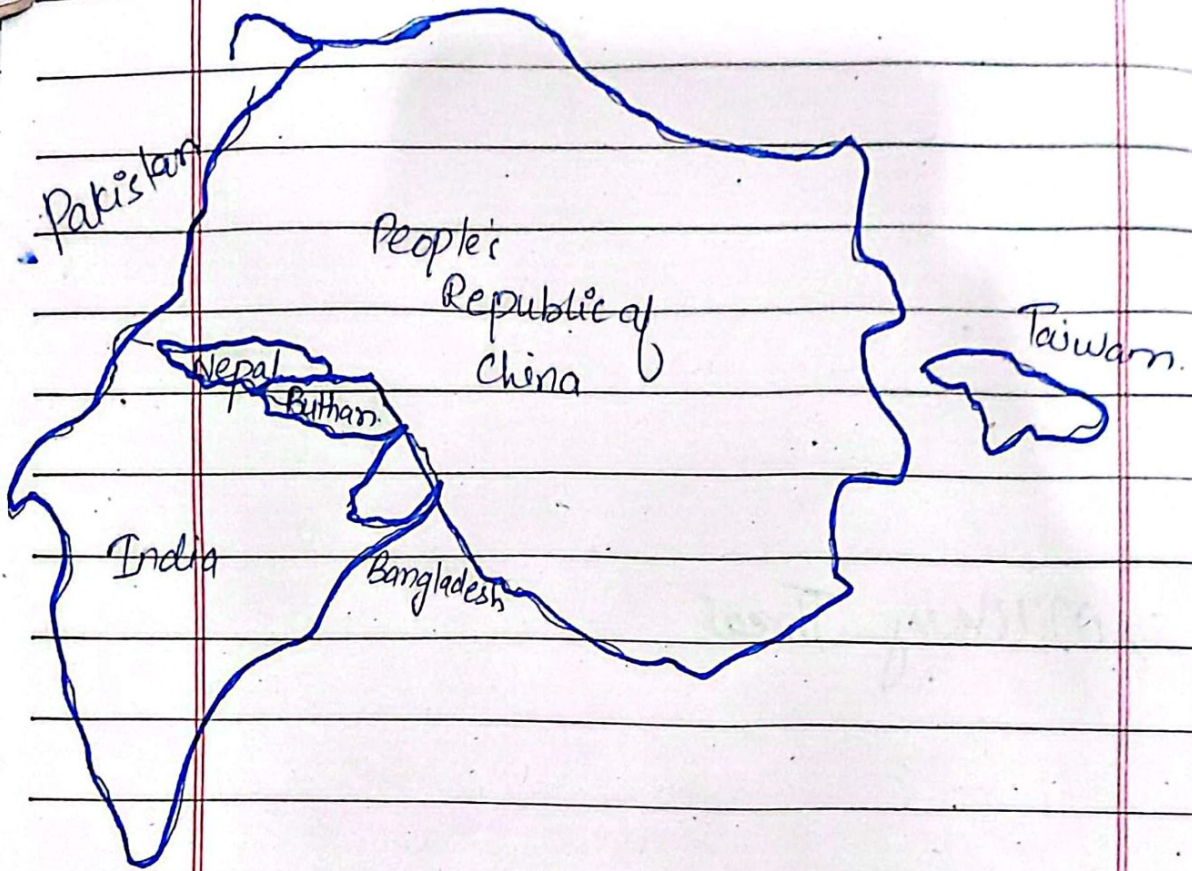 Pakistan
People's
Republic of
China
Taiwan.
Nepal
Buthan.
India
Bangladesh